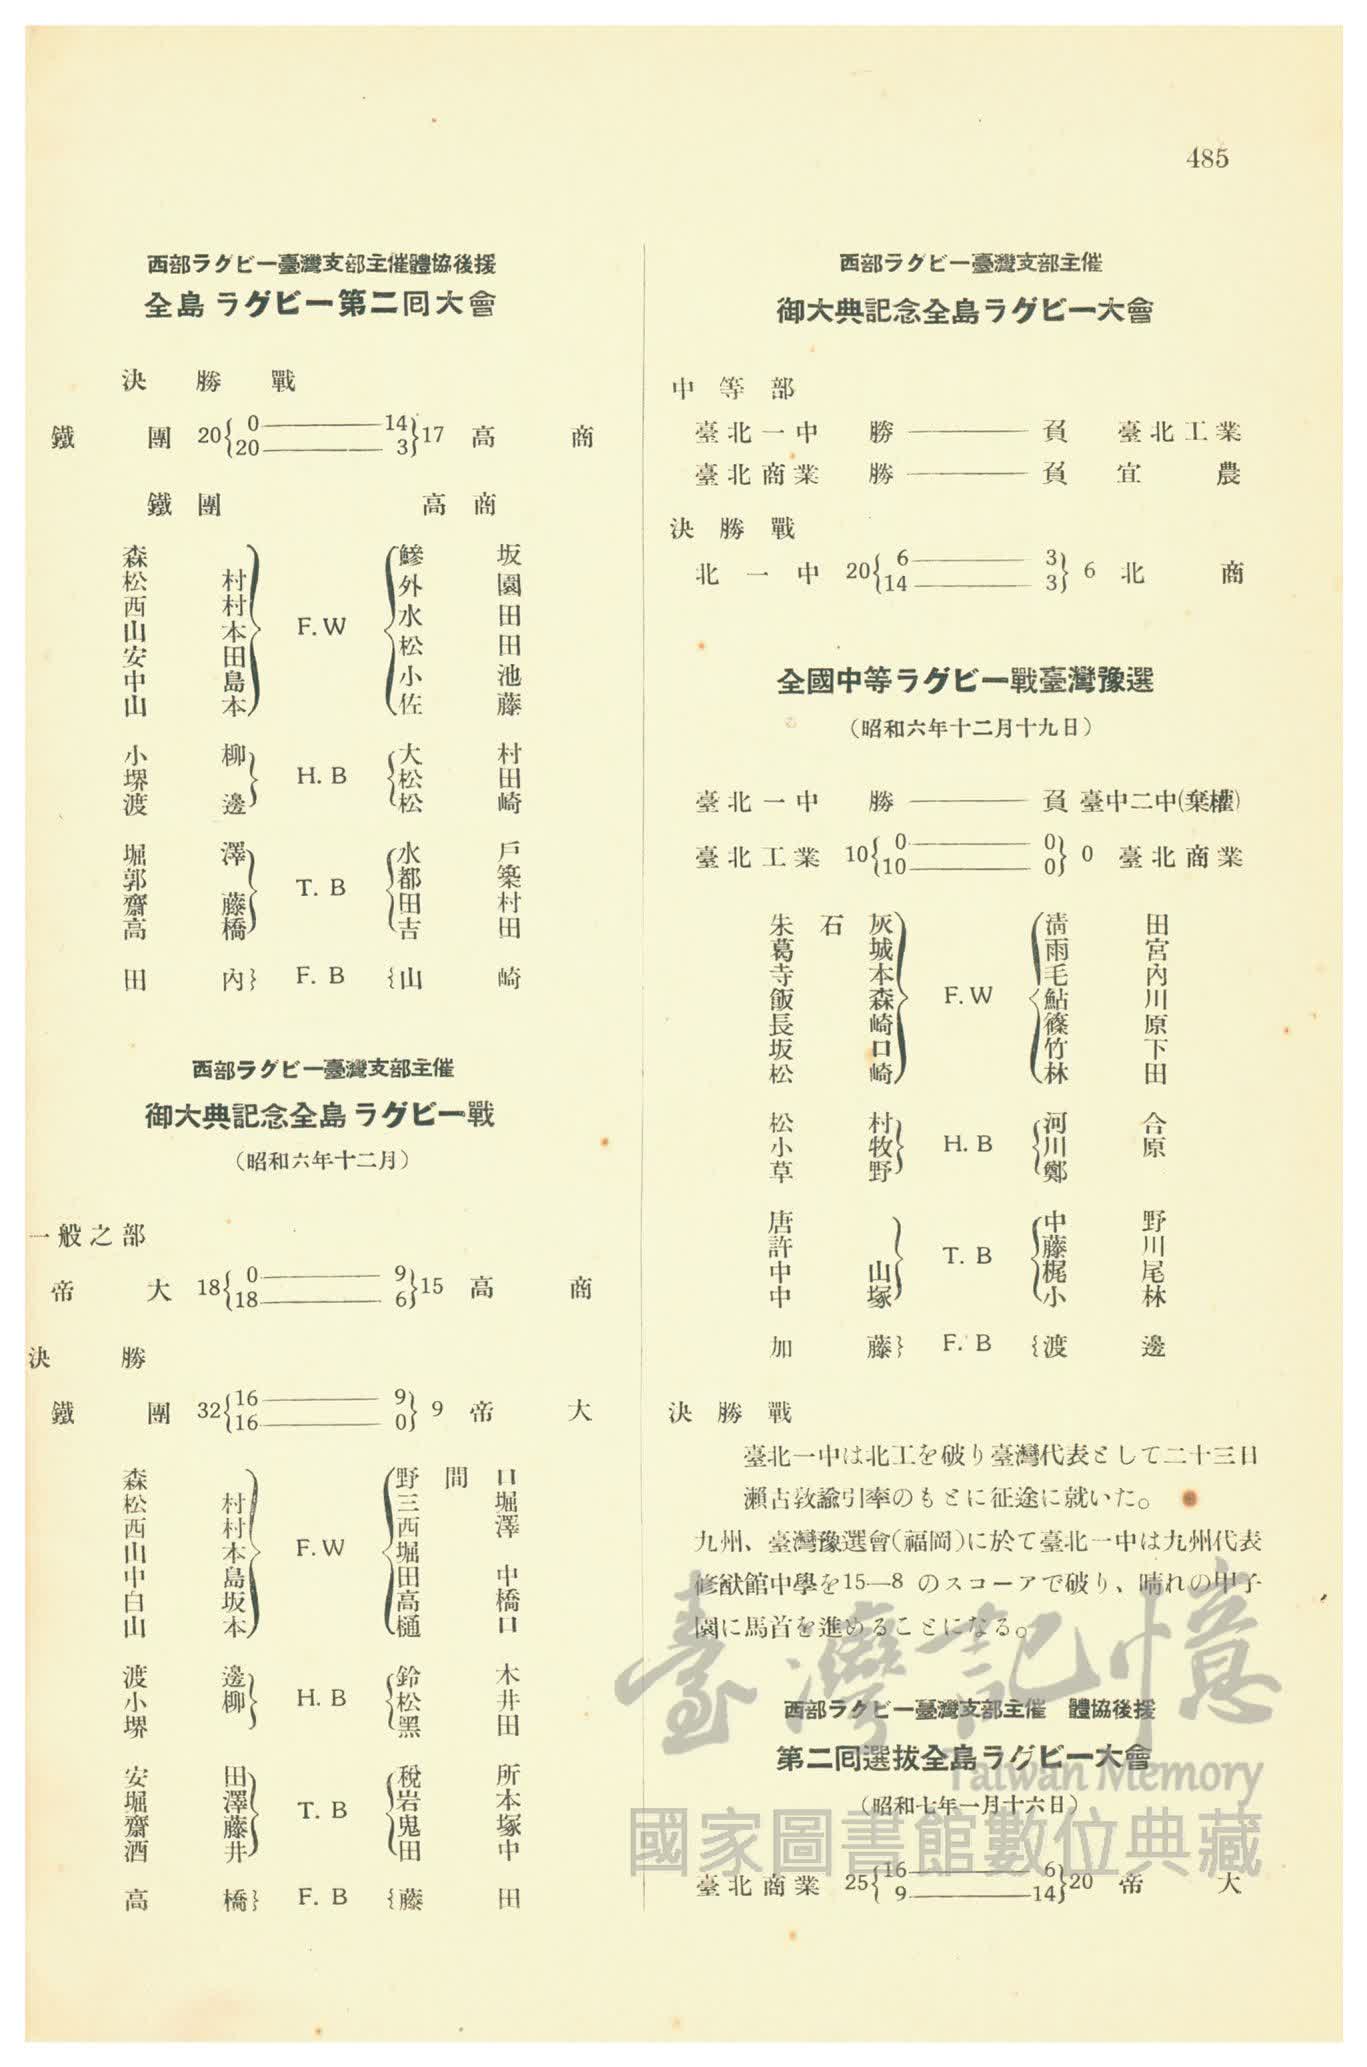 485
西部ラグビー臺灣支部主催體協後援
全島ラグビー第二囘大會
決勝戰
鐵團 20{0——14 20——3}17 高商
鐵團 高商
森
松村
西村
山本
安田
中島
山本
F.W
鰺坂
外園
水田
松田
小池
佐藤
小柳
堺
渡邊
H.B
大村
松田
松崎
堀澤
郭
齋藤
高橋
T.B
水戶
都築
田村
吉田
田內} F.B {山崎
西部ラグビー臺灣支部主催
御大典記念全島ラグビー戰
(昭和六年十二月)
一般之部
帝大 18{0——9 18——6}15 高商
決勝
鐵團 32{16——9 16——0}9 帝大
森
松村
西村
山本
中島
白坂
山本
F.W
野間口
三堀
西澤
堀
田中
高橋
樋口
渡邊
小柳
堺
H.B
鈴木
松井
黑田
安田
堀澤
齋藤
酒井
T.B
税所
岩本
鬼塚
田中
高橋} F.B {藤田
西部ラグビー臺灣支部主催
御大典記念全島ラグビー大會
中等部
臺北一中 勝——負 臺北工業
臺北商業 勝——負 宜農
決勝戰
北一中 20{6——3 14——3}6 北商
全國中等ラグビー戰臺灣豫選
(昭和六年十二月十九日)
臺北一中 勝——負 臺中二中(棄權)
臺北工業 10{0——0 10——0}0 臺北商業
朱石灰
葛城
寺本
飯森
長崎
坂口
松崎
F.W
淸田
雨宮
毛內
鮎川
篠原
竹下
林田
松村
小牧
草野
H.B
河合
川原
鄭
唐
許
中山
中塚
T.B
中野
藤川
梶尾
小林
加藤} F.B {渡邊
決勝戰
臺北一中は北工を破り臺灣代表として二十三日
瀨古敎諭引率のもとに征途に就いた。
九州、臺灣豫選會(福岡)に於て臺北一中は九州代表
修猷館中學を15—8 のスコーアで破り、晴れの甲子
園に馬首を進めることになる。
西部ラグビー臺灣支部主催 體協後援
第二囘選拔全島ラグビー大會
(昭和七年一月十六日)
臺北商業 25{16——6 9——14}20 帝大
臺灣記憶
Taiwan Memory
國家圖書館數位典藏